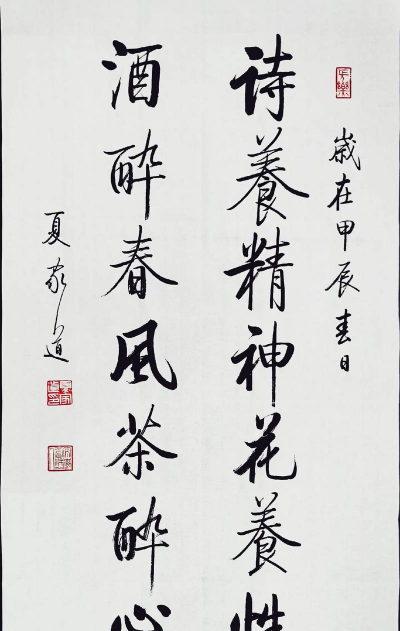 歲在甲辰春日
詩養精神花養性
酒醉春風茶醉心
夏家道